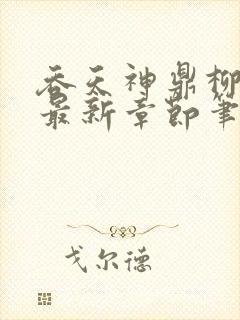 吞天神鼎柳
最新章节笔
戈尔德